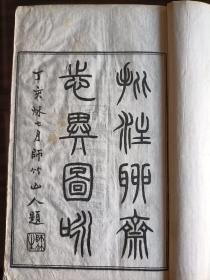 批注聊齋
志異圖咏
丁亥秋七月師竹山人題